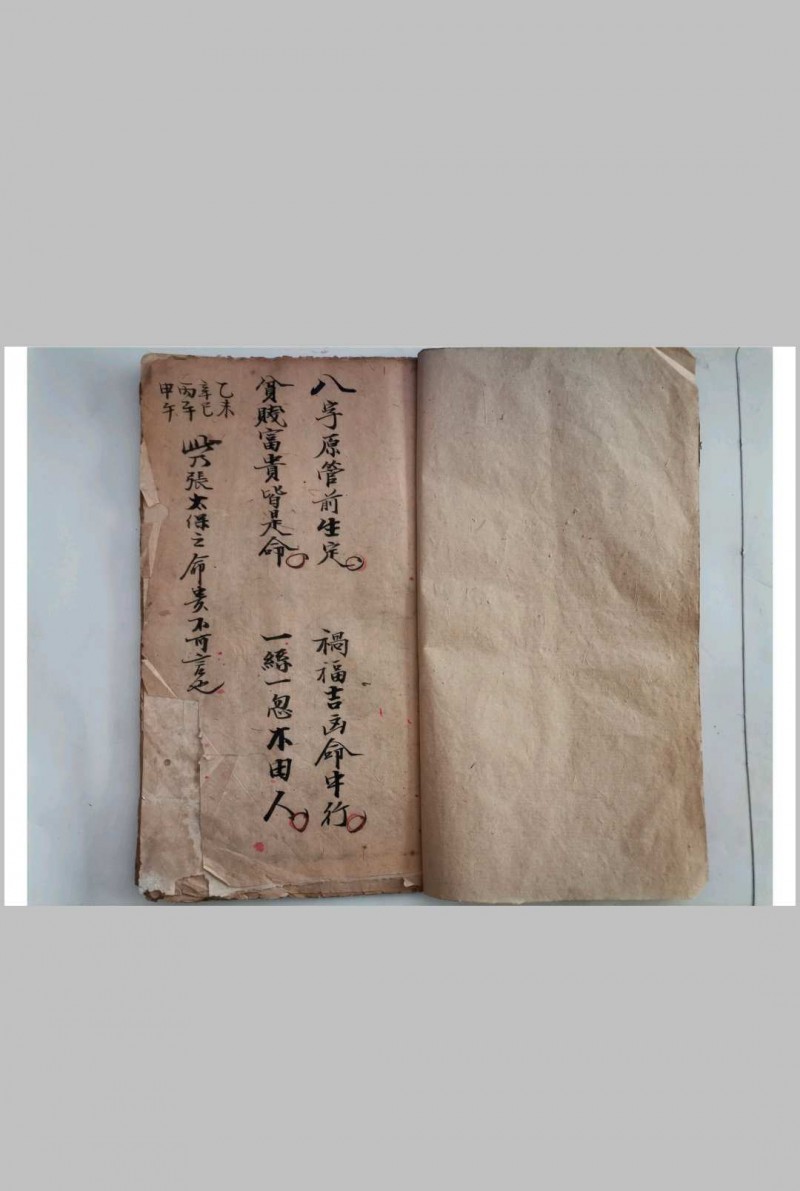 八字原管前生定
禍福吉凶命中行
貧賤富貴皆是命
一絲一忽不由人
乙未
辛巳
丙午
甲午
此乃張太保之命貴不可言也